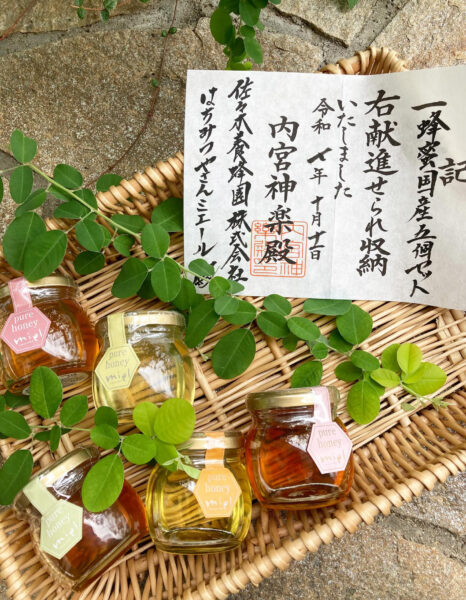 記
一蜂蜜国産五個
右献進せられ収納
いたしました
令和 七年 十月
内宮神楽殿
佐々木養蜂園株式会社
はちみつやさんミエール
pure
honey
miel
pure
honey
miel
pure
honey
miel
pure
honey
miel
pure
honey
miel